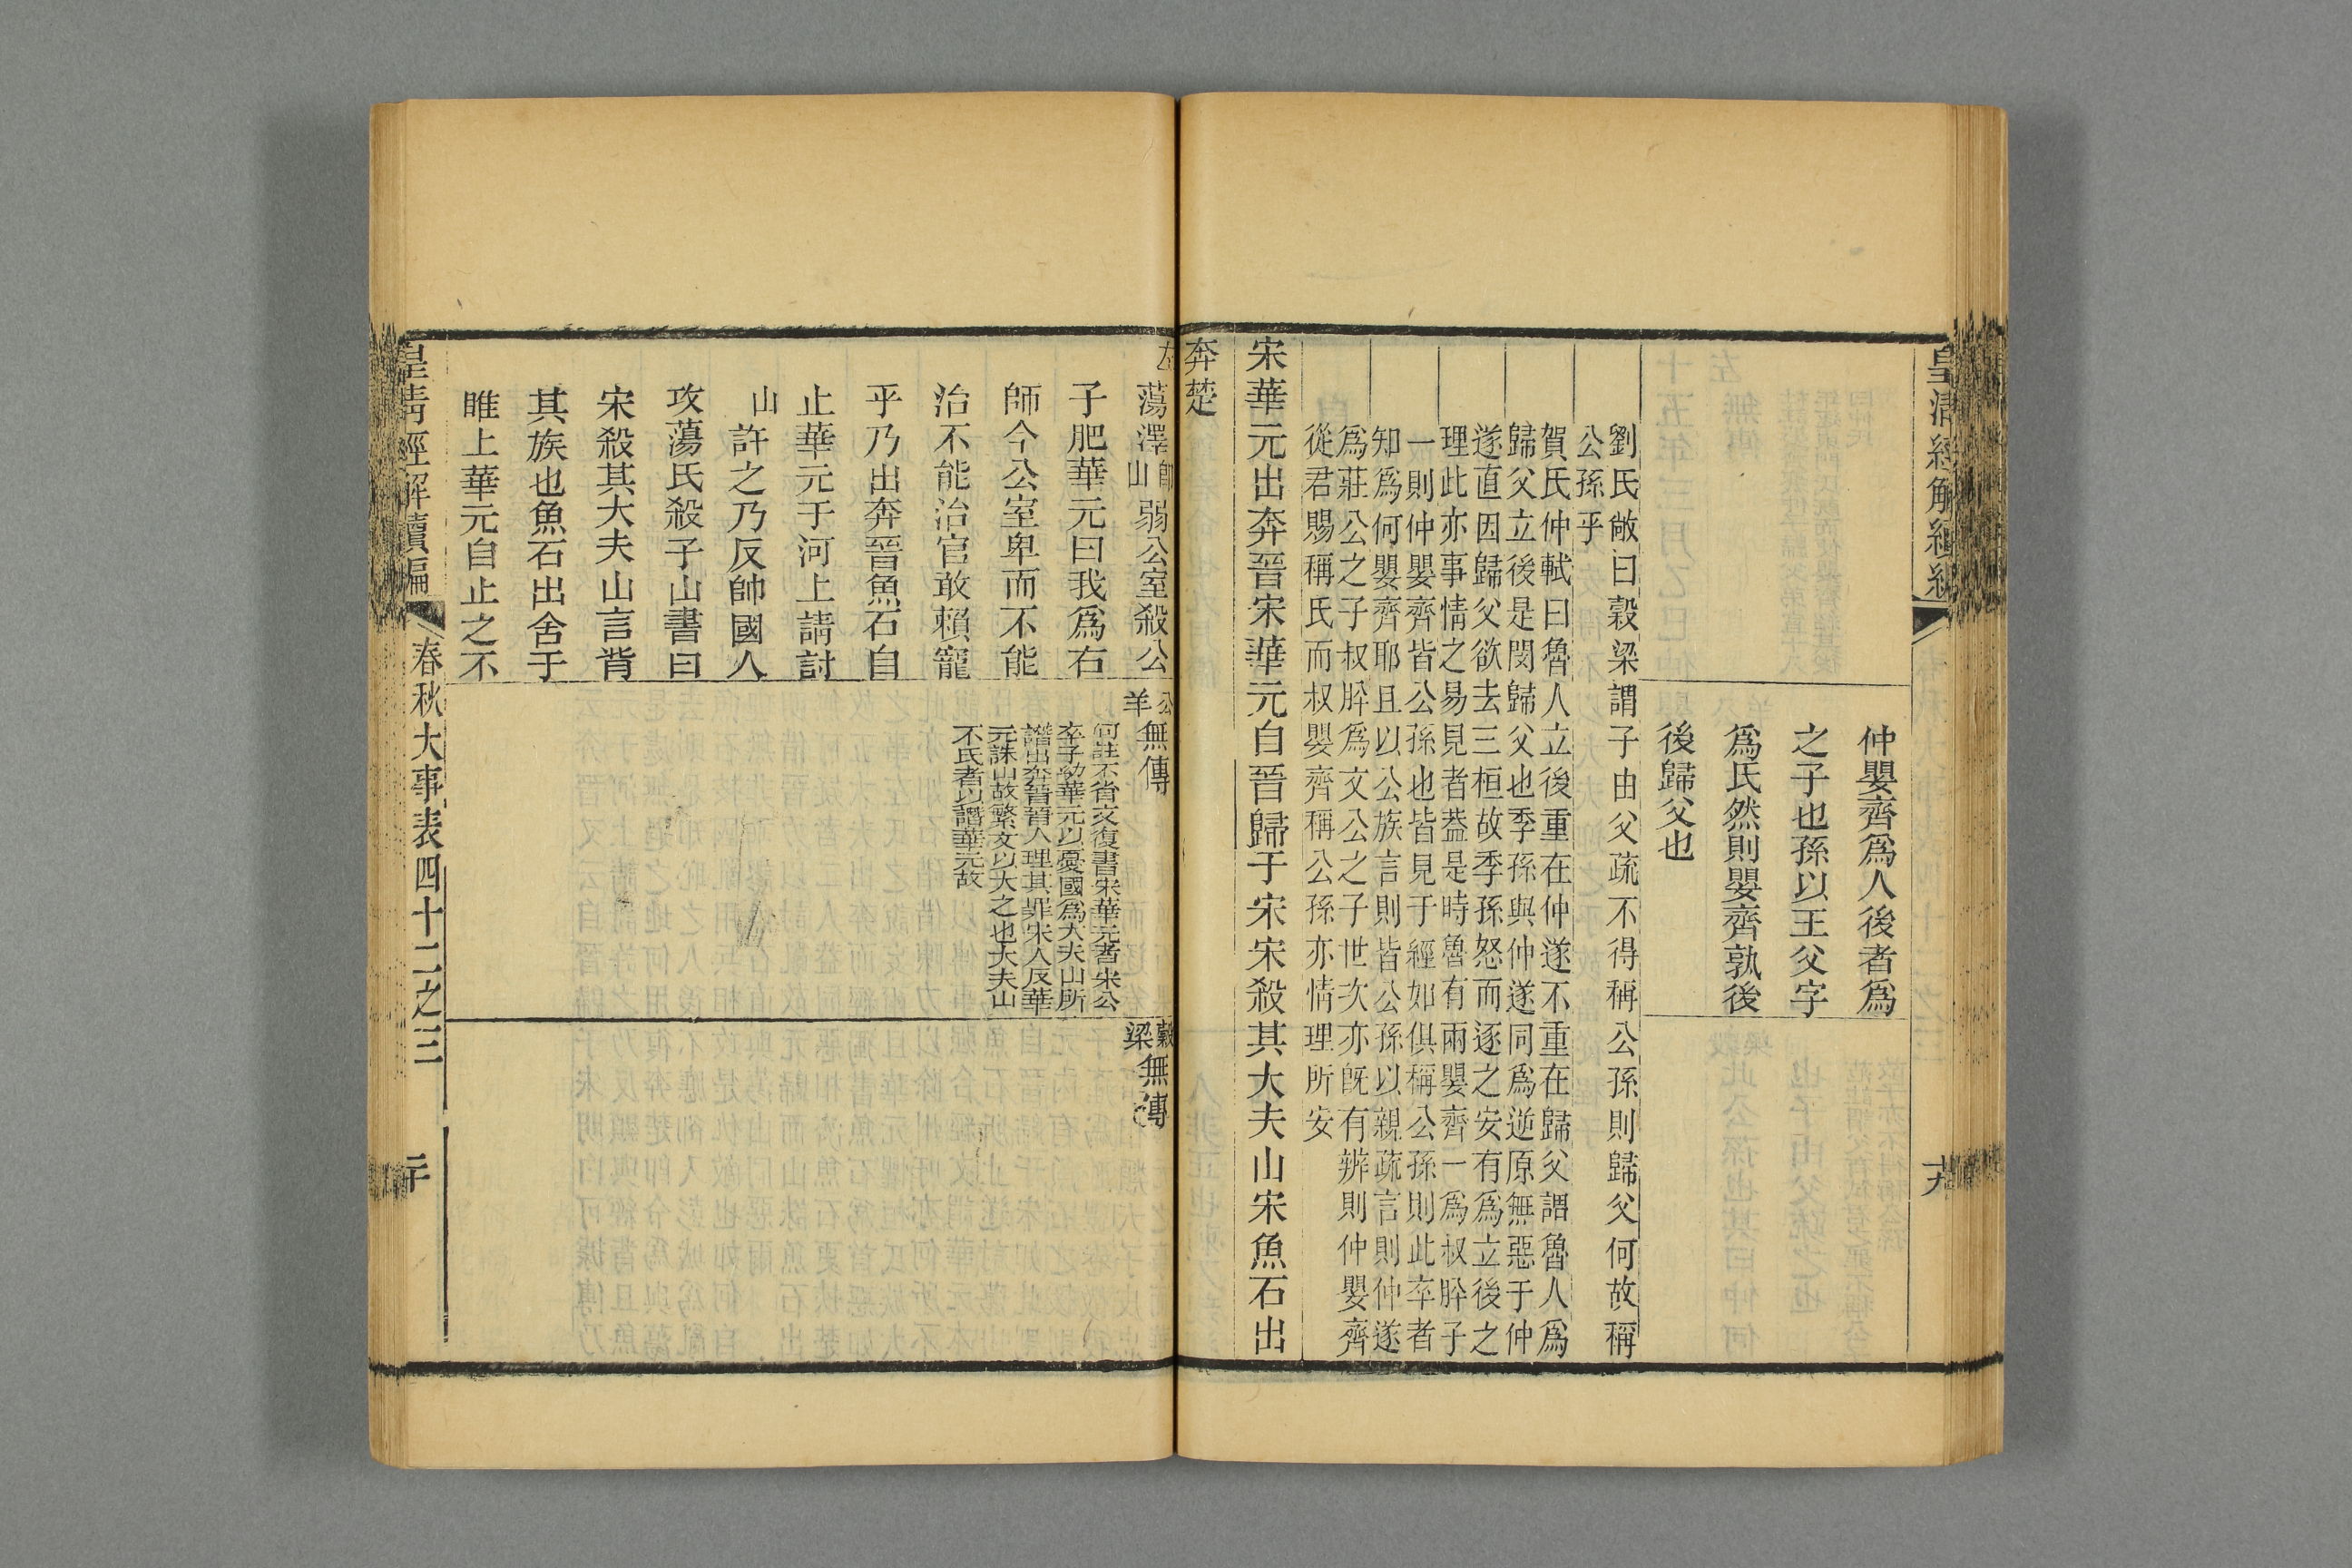 仲嬰齊爲人後者爲
之子也孫以王父字
爲氏然則嬰齊孰後
後歸父也
劉氏敞曰穀梁謂子由父疏不得稱公孫則歸父何故稱
公孫乎
賀氏仲軾曰魯人立後重在仲遂不重在歸父謂魯人爲
歸父立後是閔歸父也季孫與仲遂同爲逆原無惡于仲
遂直因歸父欲去三桓故季孫怒而逐之安有爲立後之
理此亦事情之易見者葢是時魯有兩嬰齊一爲叔肸子
一則仲嬰齊皆公孫也皆見于經如俱稱公孫則此卒者
知爲何嬰齊耶且以公族言則皆公孫以親疏言則仲遂
爲莊公之子叔肸爲文公之子世次亦旣有辨則仲嬰齊
從君賜稱氏而叔嬰齊稱公孫亦情理所安
宋華元出奔晉宋華元自晉歸于宋宋殺其大夫山宋魚石出
奔楚
左
蕩澤卽山弱公室殺公
子肥華元曰我爲右
師今公室卑而不能
治不能治官敢賴寵
乎乃出奔晉魚石自
止華元于河上請討
山許之乃反帥國人
攻蕩氏殺子山書曰
宋殺其大夫山言背
其族也魚石出舍于
睢上華元自止之不
公羊無傳
何註不省文復書宋華元者宋公
卒子幼華元以憂國爲大夫山所
譖出奔晉晉人理其罪宋人反華
元誅山故繁文以大之也大夫山
不氏者以譖華元故
穀梁無傳
皇清經解續編
春秋大事表四十二之三